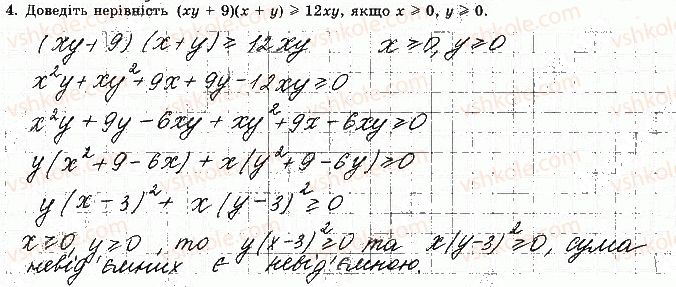 4. Доведіть нерівність (xy + 9)(x + y) ⩾ 12xy, якщо x ⩾ 0, y ⩾ 0.
(xy+9)(x+y) ≥ 12xy x≥0, y≥0
x²y+xy²+9x+9y-12xy≥0
x²y+9y-6xy+xy²+9x-6xy≥0
y(x²+9-6x)+x(y²+9-6y)≥0
y(x-3)²+x(y-3)²≥0
x≥0, y≥0, то y(x-3)²≥0 та x(y-3)²≥0, сума
невід'ємних є невід'ємною.